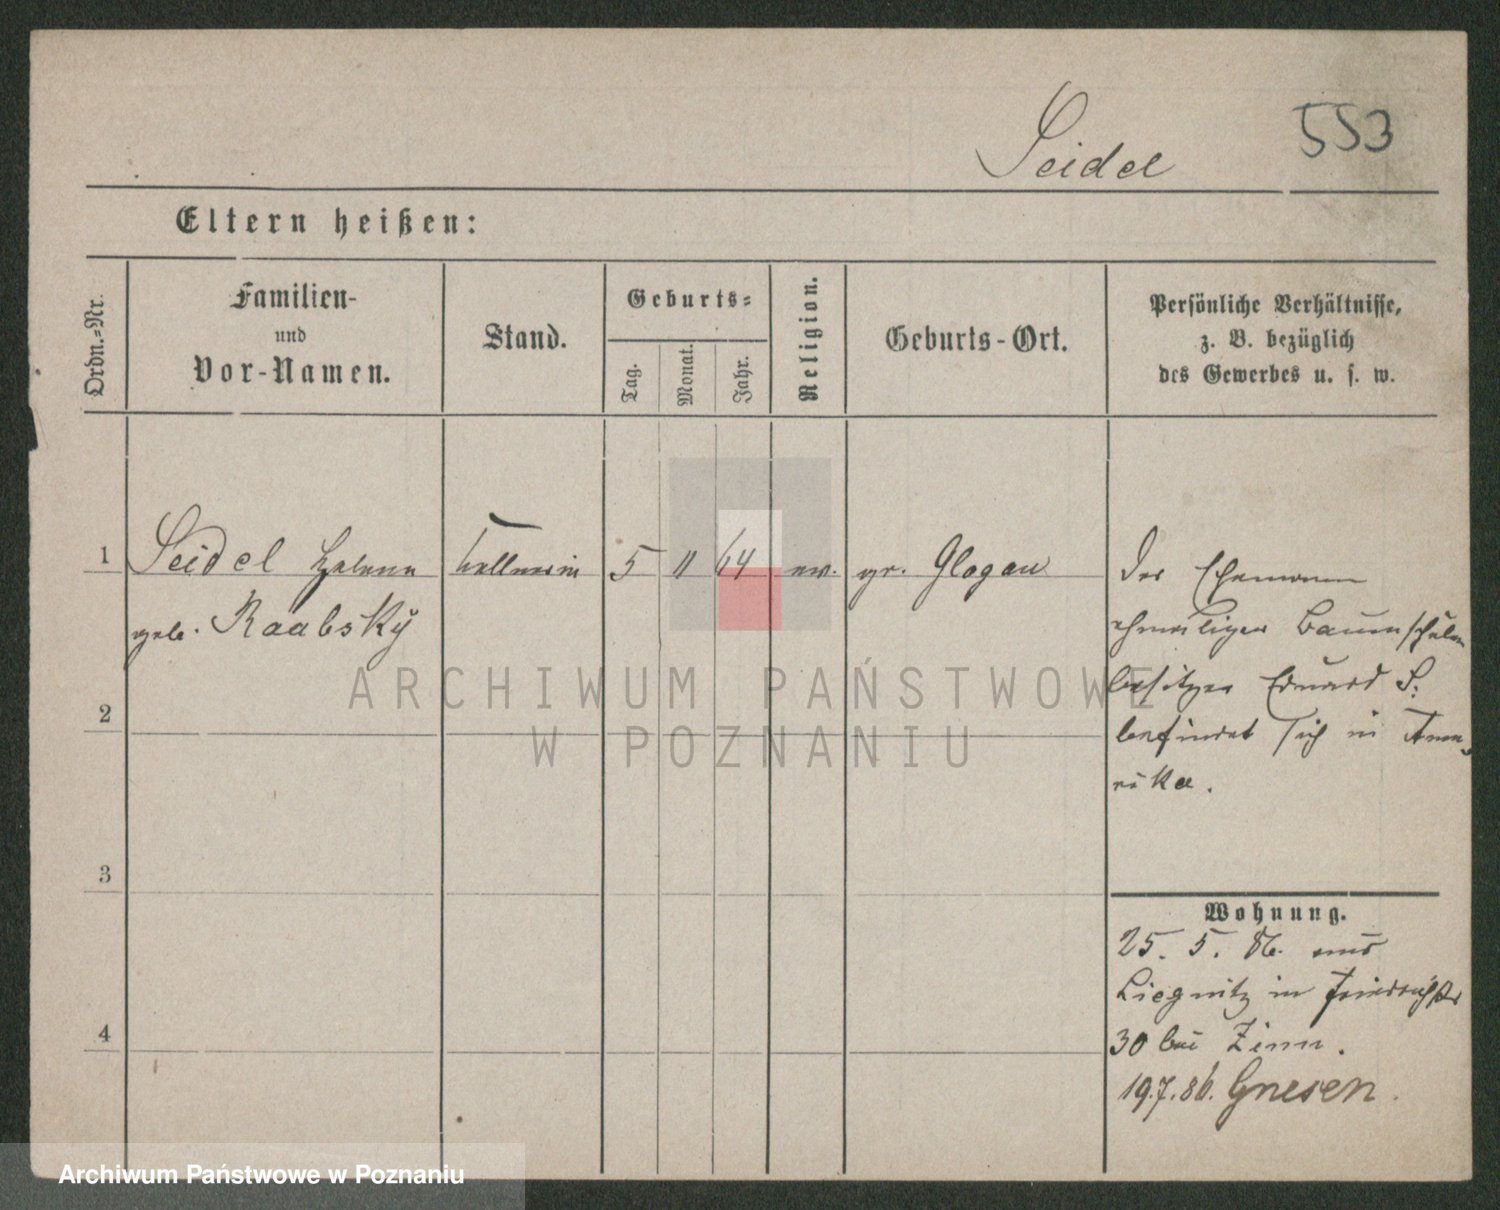 Seidel
553
Eltern heißen:
Ordn.-Nr.
Familien-
und
Vor-Namen.
Stand.
Geburts-
Tag.
Monat.
Jahr.
Religion.
Geburts-Ort.
Persönliche Verhältnisse,
z. B. bezüglich
des Gewerbes u. s. w.
1
Seidel Helene
geb. Raabsky
Kellnerin
5
11
64
ev.
gr. Glogau
Der Ehemann
ehmaliger Baumschulen
besitzer Eduard S.
befindet sich in Ame-
rika.
2
3
4
Wohnung.
25. 5. 86. aus
Liegnitz in Friedrichstr
30 bei Zinn.
19.7.86. Gnesen.
ARCHIWUM PAŃSTWOWE
W POZNANIU
Archiwum Państwowe w Poznaniu